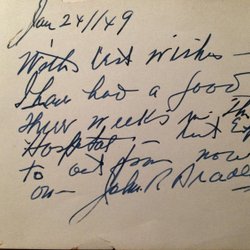 Jan 24/149
With best wishes —
I have had a good
three weeks in
Hospital
to eat from now
on — John R Bradl